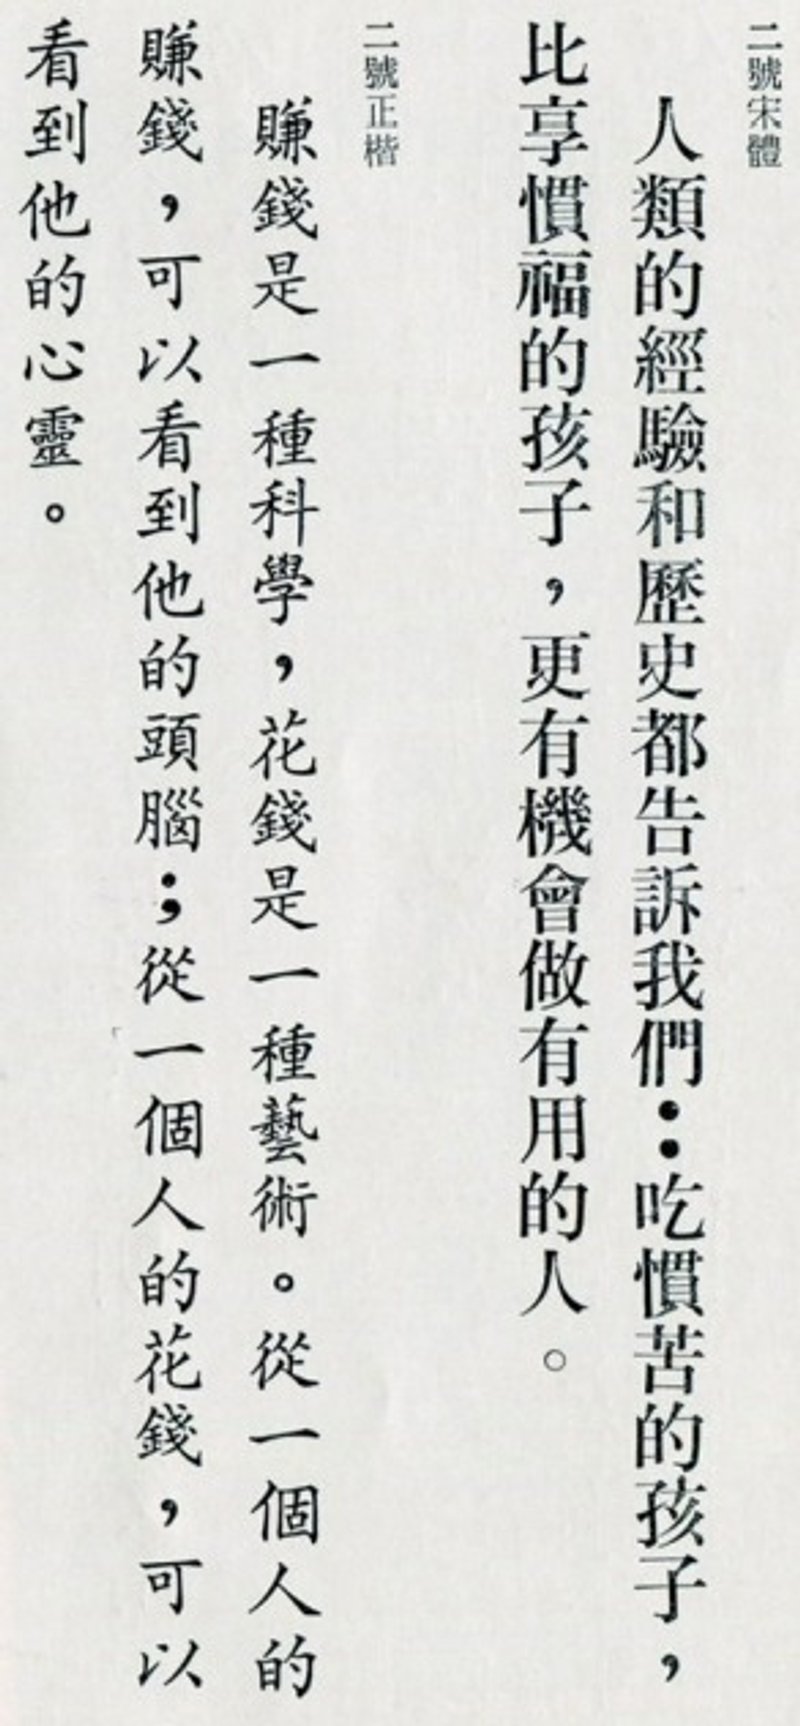 二號宋體
人類的經驗和歷史都告訴我們：吃慣苦的孩子，
比享慣福的孩子，更有機會做有用的人。
二號正楷
賺錢是一種科學，花錢是一種藝術。從一個人的
賺錢，可以看到他的頭腦；從一個人的花錢，可以
看到他的心靈。